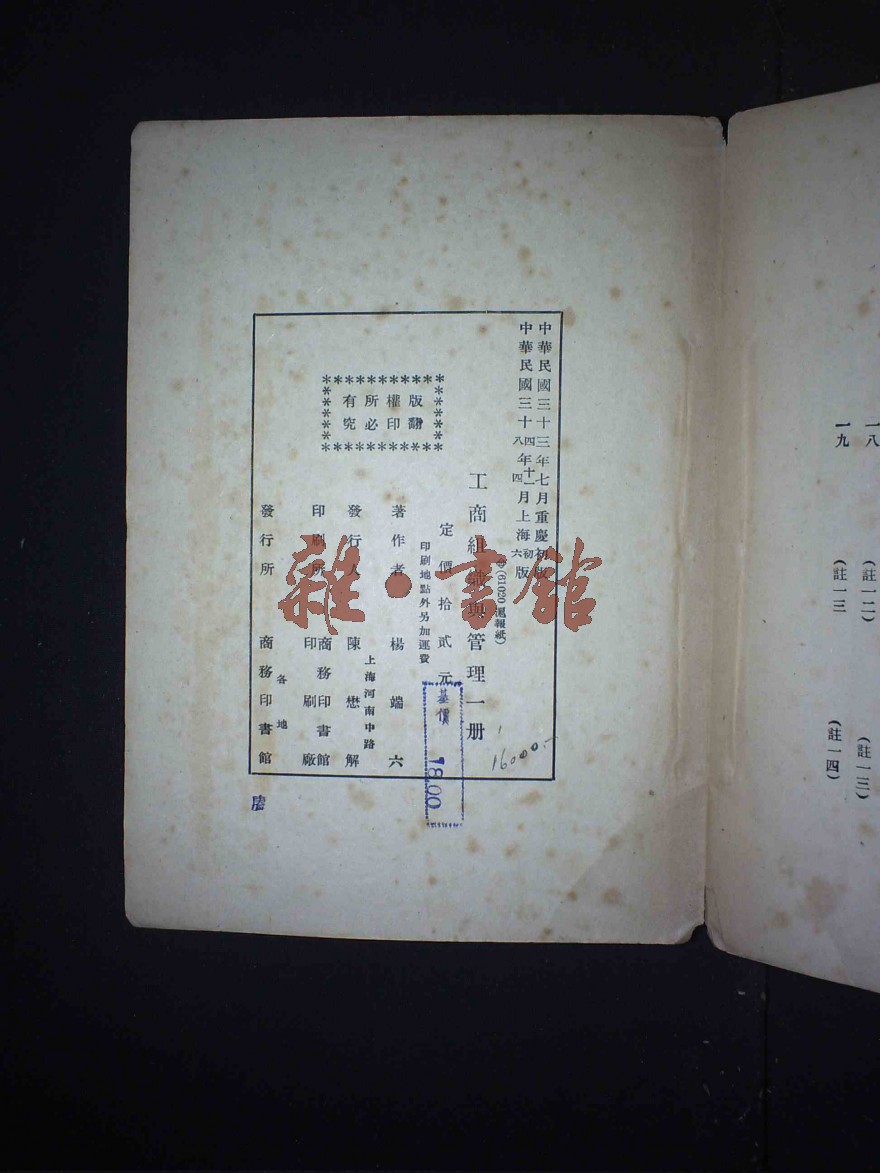 中華民國三十三年七月重慶初版
中華民國三十四年十一月上海初版
八 四 六
工商組織與管理一册
(61020 滬報紙)
定價拾貳元
印刷地點外另加運費
基價 18.00
16000.-
版權所有
翻印必究
著作者 楊端六
發行人 陳懋解
上海河南中路
印刷所 商務印書館
印刷廠
發行所 商務印書館
各地
雜·書館
一八
一九
(註一二)
(註一三
(註一三)
(註一四)